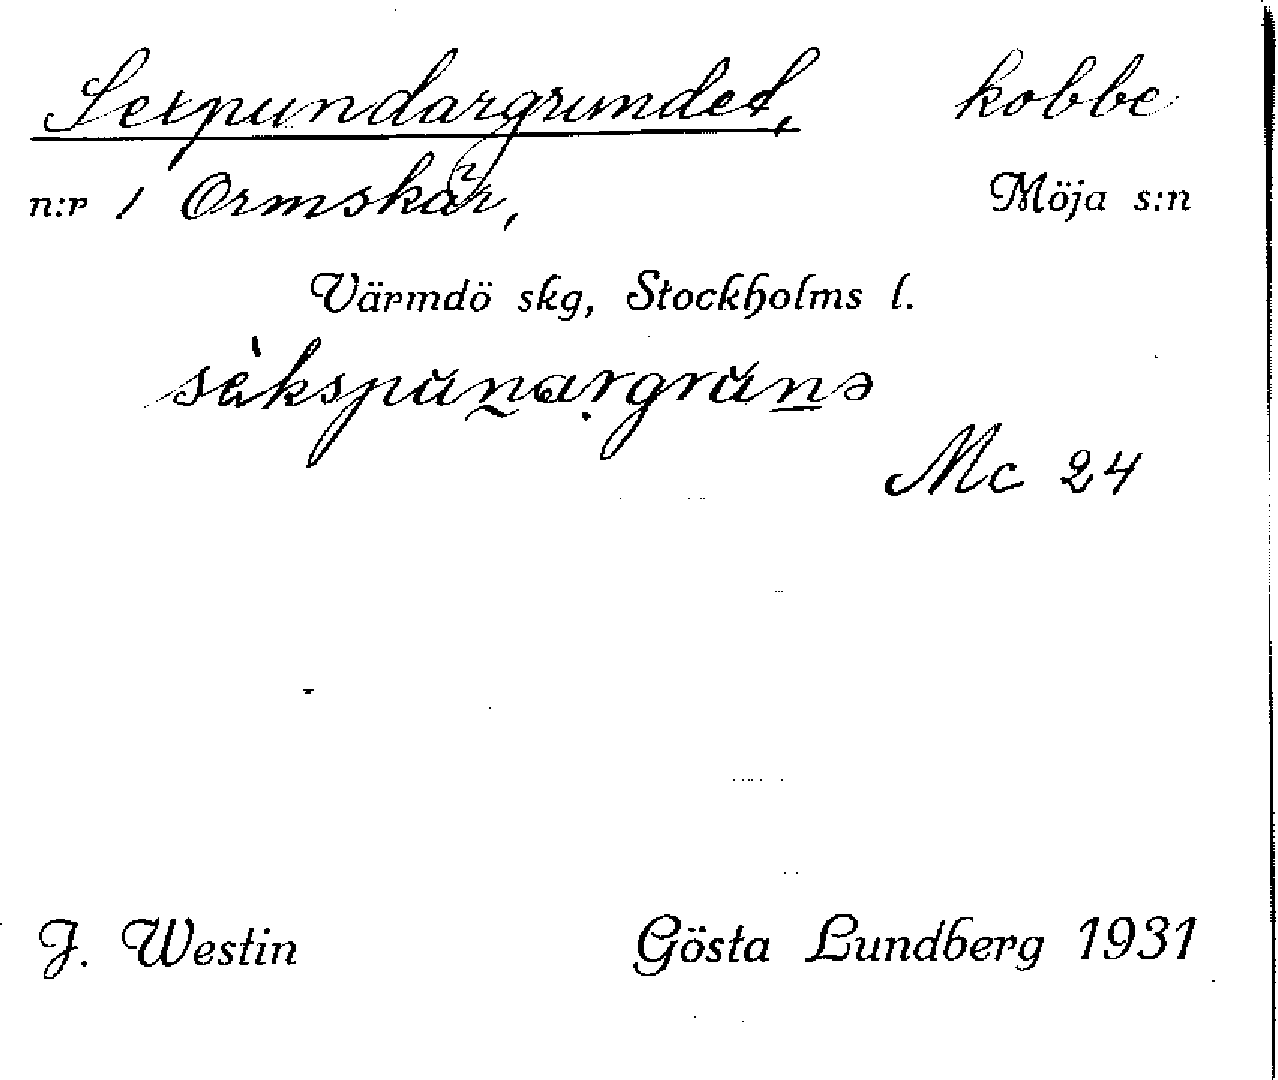 Sexpundargrundet, kobbe
n:r 1 Ormskär, Möja s:n
Värmdö skg, Stockholms l.
sèkspŭnargrŭnə
Mc 24
J. Westin Gösta Lundberg 1931